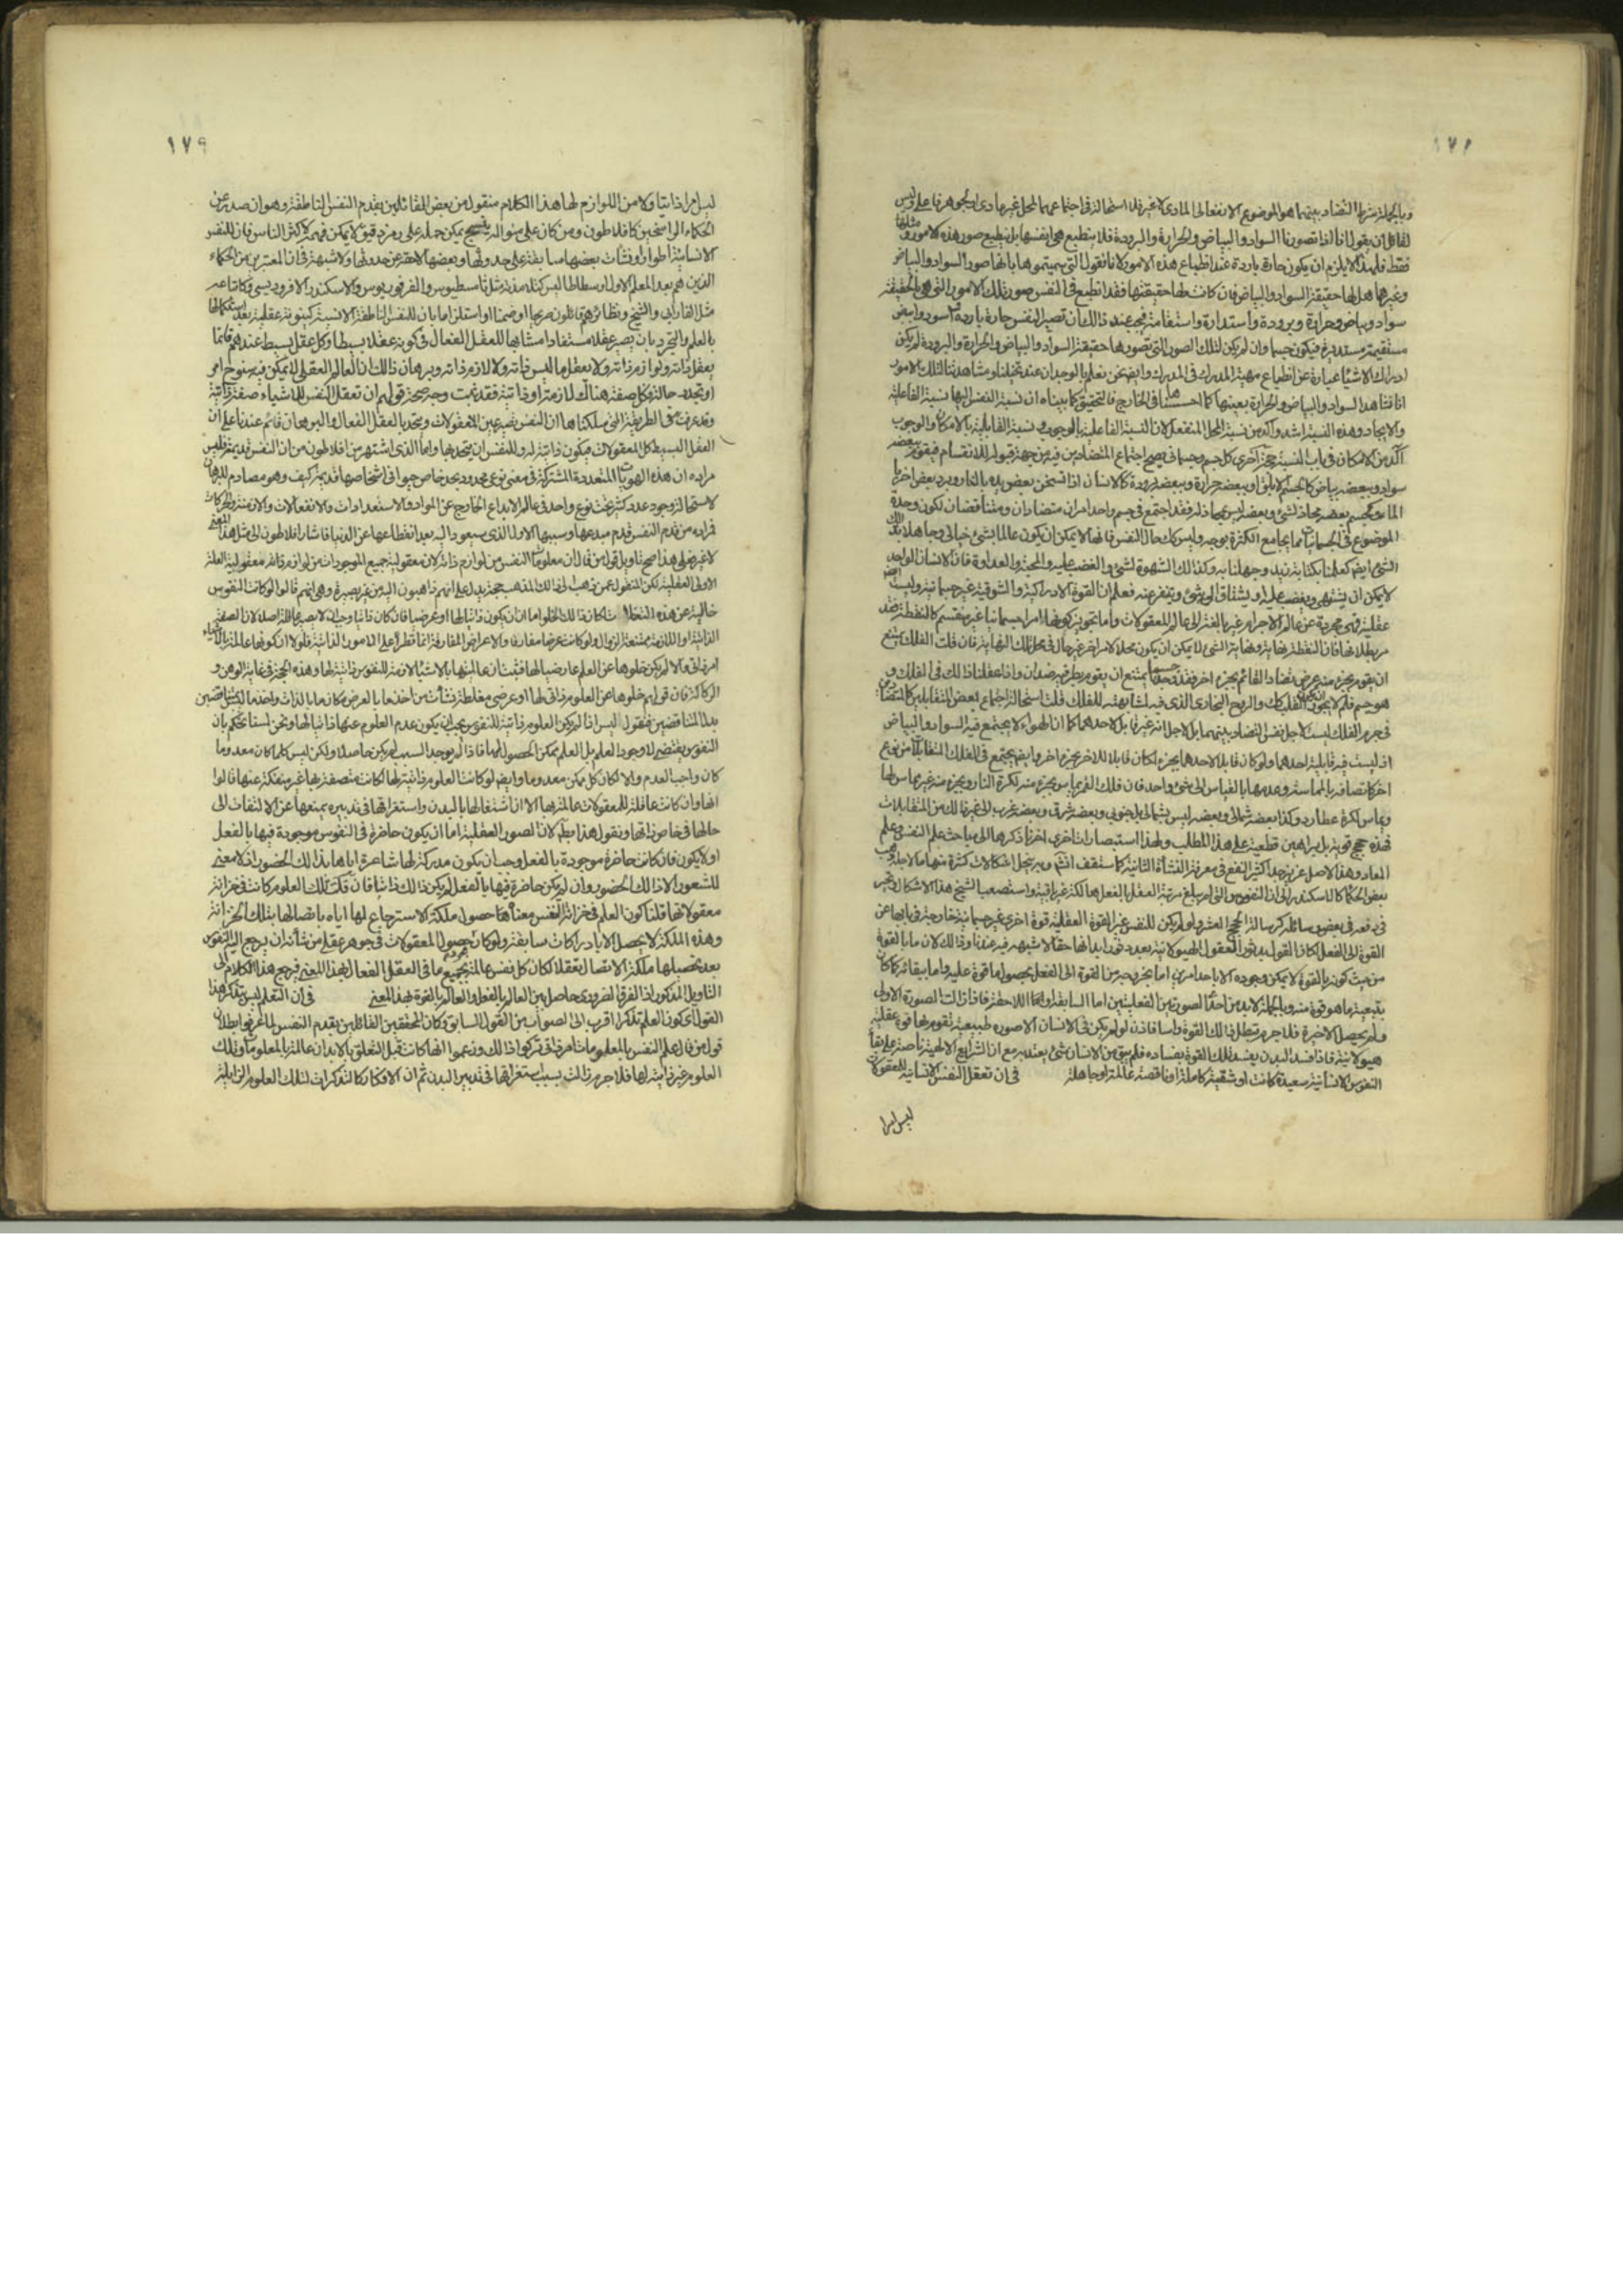 ١٧٨
وبالجملة شرط التضاد بينهما هو الموضوع الانفعالي المادي لا غير فلا استحالة في اجتماعهما لمحل غير مادي
لقائل ان يقول انا اذا تصورنا السواد والبياض والحرارة والبرودة فلا ينطبع هي انفسها بل ينطبع صور هذه الامور
فقط فلهذا لا يلزم ان يكون حارة باردة عند انطباع هذه الامور لانا نقول التي سميتموها بانها صور السواد والبياض
وغيرهما هل لها حقيقة السواد والبياض فان كانت لها حقيقتها فقد انطبع في النفس صور تلك الامور التي هي بالحقيقة
سواد وبياض وحرارة وبرودة واستدارة واستقامة فيجب عند ذلك ان تصير النفس حارة باردة اسود وابيض
مستقيمة مستديرة فيكون جسما وان لم يكن لتلك الصور التي تصورها حقيقة السواد والبياض والحرارة والبرودة لم يكن
ادراك الاشياء عبارة عن انطباع مهية المدرك في المدرك وايضا نحن نعلم بالوجدان عند تخيلنا ومشاهدتنا لتلك الامور
انا نشاهد السواد والبياض والحرارة بعينها كما احسسنا في الخارج فالتحقيق كما بيناه ان نسبة النفس اليها نسبة الفاعلية
والايجاد وهذه النسبة اشد وآكد من نسبة المحل المنفعل لان النسبة الفاعلية بالوجوب ونسبة القابلية بالامكان والوجوب
آكد من الامكان في باب النسبة حجة اخرى كل جسم وجسماني يصح اجتماع المتضادين فيه من جهة قبوله للانقسام
سواد وببعضه بياض كالجسم الابلق او ببعضه حرارة وببعضه برودة كالانسان اذا تسخن بعض بدنه بالنار ويبرد بعض اخر
الماء وكجسم بعضه محاذ لشيء وبعضه ليس بمحاذ له فقد اجتمع في جسم واحد امران متضادان ومتناقضان لكون وحدة
الموضوع في الجسمانيات مما يجامع الكثرة بوجه وليس كك حال النفس فانها لا يمكن ان يكون عالما بشيء خيالي وجاهلا
الشيء ايضا كعلمنا بكتابة زيد وجهلنا به وكذلك الشهوة لشيء والغضب عليه والمحبة والعداوة فان الانسان الواحد
لا يمكن ان يشتهي ويغضب عليه او يشتاق الى شيء ويتنفر عنه فعلم ان القوة الادراكية والشوقية غير جسمانية وليست
عقلية فهي مجردة عن عالم الاجرام غير بالغة الى عالم المعقولات واما تجويز كونها امرا جسمانيا غير منقسم كالنقطة فقد
مر بطلانها فان النقطة نهاية ونهاية الشيء لا يمكن ان يكون محلا لامر اخر غير حال في محل تلك النهاية فان قلت الفلك يمتنع
ان يقوم بجزء منه عرض تضاد القائم بجزء اخر فقد وجد جسما يمتنع ان يقوم بطرفيه ضدان واذا عقلنا ذلك في الفلك
هو جسم فلم لا يجوز ان يكون القلب كك والروح البخاري الذي فيه لمشابهته للفلك قلت استحالة اجتماع بعض المتقابلين كالمتضادين
في جرم الفلك ليست لاجل نفس التضاد بينهما بل لاجل انه غير قابل لاحدهما كما ان الهواء لا يجتمع فيه السواد والبياض
اذ ليست فيه قابلية احدهما ولو كان قابلا لاحدهما بجزء لكان قابلا للاخر بجزء اخر وايضا يجتمع في الفلك المتقابلات من نوع
اخر كاتصافه بالمماسة وعدمها بالقياس الى شيء واحد فان فلك القمر يماس بجزء منه لكرة النار وبجزء منه غير مماس لها
ويماس لكرة عطارد وكذا بعضه شمالي وبعضه ليس بشمالي بل جنوبي وبعضه شرقي وبعضه غربي الى غير ذلك من المتقابلات
فهذه حجج قوية بل براهين قطعية على هذا المطلب ولهذا استبصارات اخرى اخرنا ذكرها الى مباحث علم النفس وعلم
المعاد وهذا الاصل عزيز جدا كثير النفع في معرفة النشأة الثانية كما ستقف انشم وبه ينحل اشكالات كثيرة منها ما لاجله
بعض الحكماء كالاسكندر الى ان النفوس التي لم يبلغ مرتبة العقل بالفعل هالكة غير باقية واستصعب الشيخ هذا الاشكال وتحير
في دفعه في بعض رسائله كرسالة الحجج العشر ولو لم يكن للنفس غير القوة العقلية قوة اخرى غير جسمانية خارجة في بابها عن
القوة الى الفعل لكان القول ببطلان العقول الهيولانية بعد دثور ابدانها حقا لا شبهة فيه عندنا وذلك لان ما بالقوة
من حيث كونه بالقوة لا يمكن وجوده الا باحد امرين اما بخروجه من القوة الى الفعل بحصول ما قوة عليه واما ببقائه كما كان
بتبعية ما هو قوة منه وبالجملة لابد من احد الصورتين الفعليتين اما السابقة او اللاحقة فاذا زالت الصورة الاولى
ولم يحصل الاخيرة فلا جرم تبطل تلك القوة راسا فاذن لو لم يكن في الانسان الا صورة طبيعية تقوم بها قوة عقلية
هيولانية فاذا فسد البدن يفسد تلك القوة بفساده فلم يبق من الانسان شيء يعتد به مع ان الشرايع الالهية ناصة على بقاء
النفوس الانسانية سعيدة كانت او شقية كاملة او ناقصة عالمة او جاهلة في ان تعقل النفس الانسانية للمعقولات
ليس امرا
١٧٩
ليس امرا ذاتيا ولا من اللوازم لها هذا الكلام منقول من بعض القائلين بقدم النفس الناطقة وهو ان صدر عن
الحكماء الراسخين كافلاطون ومن كان على منواله ينسج يمكن حمله على رمز دقيق لا يمكن فهمه لاكثر الناس فان للنفس
الانسانية اطوارا ونشآت بعضها سابقة على حدوثها وبعضها لاحقة عن حدوثها ولا شبهة في ان المعتبرين من الحكماء
الذين هم بعد المعلم الاول ارسطاطاليس كتلامذته مثل ثامسطيوس والفرفوريوس والاسكندر الافروديسي وكاتباعه
مثل الفارابي والشيخ ونظائرهم قائلون صريحا او ضمنا او استلزاما بان للنفس الناطقة الانسية كينونة عقلية بعد استكمالها
بالعلم والتجرد بان يصير عقلا مستفادا مشابها للعقل الفعال في كونه عقلا بسيطا وكل عقل بسيط عندهم فانما
يعقل ذاته ولوازم ذاته ولا يعقل ما ليس ذاته ولا لازم ذاته وبرهان ذلك ان العالم العقلي لا يمكن فيه سنوح امر
او تجدد حالة فكل صفة هناك لازمة او ذاتية فقد ثبت وجه صحة قولهم ان تعقل النفس للاشياء صفة ذاتية
وقد عرفت في الطريقة التي سلكناها ان النفس تصير عين المعقولات ويتحد بالعقل الفعال والبرهان قائم عندنا على ان
العقل البسيط كل المعقولات فيكون ذاتية له وللنفس ان يتحد بها واما الذي اشتهر من افلاطون من ان النفس قديمة فليس
مراده ان هذه الهويات المتعددة المشتركة في معنى نوعي محدود بحد خاص حيواني اشخاصها قديمة كيف وهو مصادم للبرهان
لاستحالة وجود عدد كثير تحت نوع واحد في عالم الابداع الخارج عن المواد والاستعدادات والانفعالات والازمنة والحركات
فمراده من قدم النفس قدم مبدعها وسببها الاول الذي سيعود اليه بعد انقطاعها عن الدنيا فاشار افلاطون الى مثل هذا المعنى
لا غير فعلى هذا صح تاويل قول من قال ان معلومات النفس من لوازم ذاته لان معقولية جميع الموجودات من لوازم ذاته معقولية العلة
الاولى العقلية لكن المنقول عمن ذهب الى ذلك المذهب حجة يدل على انهم ذاهبون اليه من غير بصيرة وهي انهم قالوا لو كانت النفوس
خالية عن هذه التعقلات لكان ذلك الخلو اما ان يكون ذاتيا لها او عرضيا فان كان ذاتيا وجب ان لا يصير عاقلة اصلا لان الصفة
الذاتية او اللازمة ممتنعة الزوال ولو كانت عرضا مفارقا والاعراض المفارقة انما تطرأ على الامور الذاتية فلولا ان كونها عالمة بالاشياء
امر ذاتي والا لم يكن خلوها عن العلم عارضيا لها فثبت ان عالميتها بالاشياء لازمة للنفوس ذاتية لها وهذه الحجة في غاية الوهن و
الركاكة فان قولهم خلوها عن العلوم ذاتي لها او عرضي مغالطة نشأت من اخذ ما بالعرض مكان ما بالذات
بدل المتناقضين فنقول اليس اذا لم يكن العلوم ذاتية للنفوس يجب ان يكون عدم العلوم عنها ذاتيا لها ونحن لسنا نحكم بان
النفوس يقتضي لا وجود العلم بل العلم ممكن الحصول لها فاذا لم يوجد السبب لم يكن حاصلا ولكن ليس كلما كان معدوما
كان واجب العدم والا لكان كل ممكن معدوما وايضا لو كانت العلوم ذاتية لها لكانت متصفة بها غير منفكة عنها قالوا
انها وان كانت عاقلة للمعقولات عالمة بها الا ان اشتغالها بالبدن واستغراقها في تدبيره يمنعها عن الالتفات الى
حالها في خاص ذاتها ونقول هذا بط لان الصور العقلية اما ان يكون حاضرة في النفوس موجودة فيها بالفعل
او لا يكون فان كانت حاضرة موجودة بالفعل وجب ان يكون مدركة لها شاعرة اياها بذلك الحضور اذ لا معنى
للشعور الا ذلك الحضور وان لم يكن حاضرة فيها بالفعل لم يكن ذلك ذاتيا فان قلت تلك العلوم كانت في خزانة
معقولاتها قلنا كون العلوم في خزانة النفس معناه حصول ملكة الاسترجاع لها اياه باتصالها بتلك الخزانة
وهذه الملكة لا يحصل الا بادراكات سابقة ولو كان حصول المعقولات في جوهر عقلي من شأنه ان يرجع اليه النفوس
بعد تحصيلها ملكة الاتصال تعقلا لكان كل نفس عالمة بجميع ما في العقل الفعال بهذا المعنى فرجع هذا الكلام الى
التاويل المذكور اذ الفرق الضروري حاصل بين العالم بالفعل والعالم بالقوة بهذا المعنى في ان التعلم ليس بتذكر هذا
القول اي كون العلم تذكرا اقرب الى الصواب من القول السابق وكان المحققين القائلين بقدم النفس لما عرفوا بطلان
قول من قال علم النفس بالمعلومات امر ذاتي تركوا ذلك وزعموا انها كانت قبل التعلق بالابدان عالمة بالمعلومات وتلك
العلوم غير ذاتية لها فلا جرم زالت بسبب استغراقها في تدبير البدن ثم ان الافكار كالتذكرات لتلك العلوم الزايلة